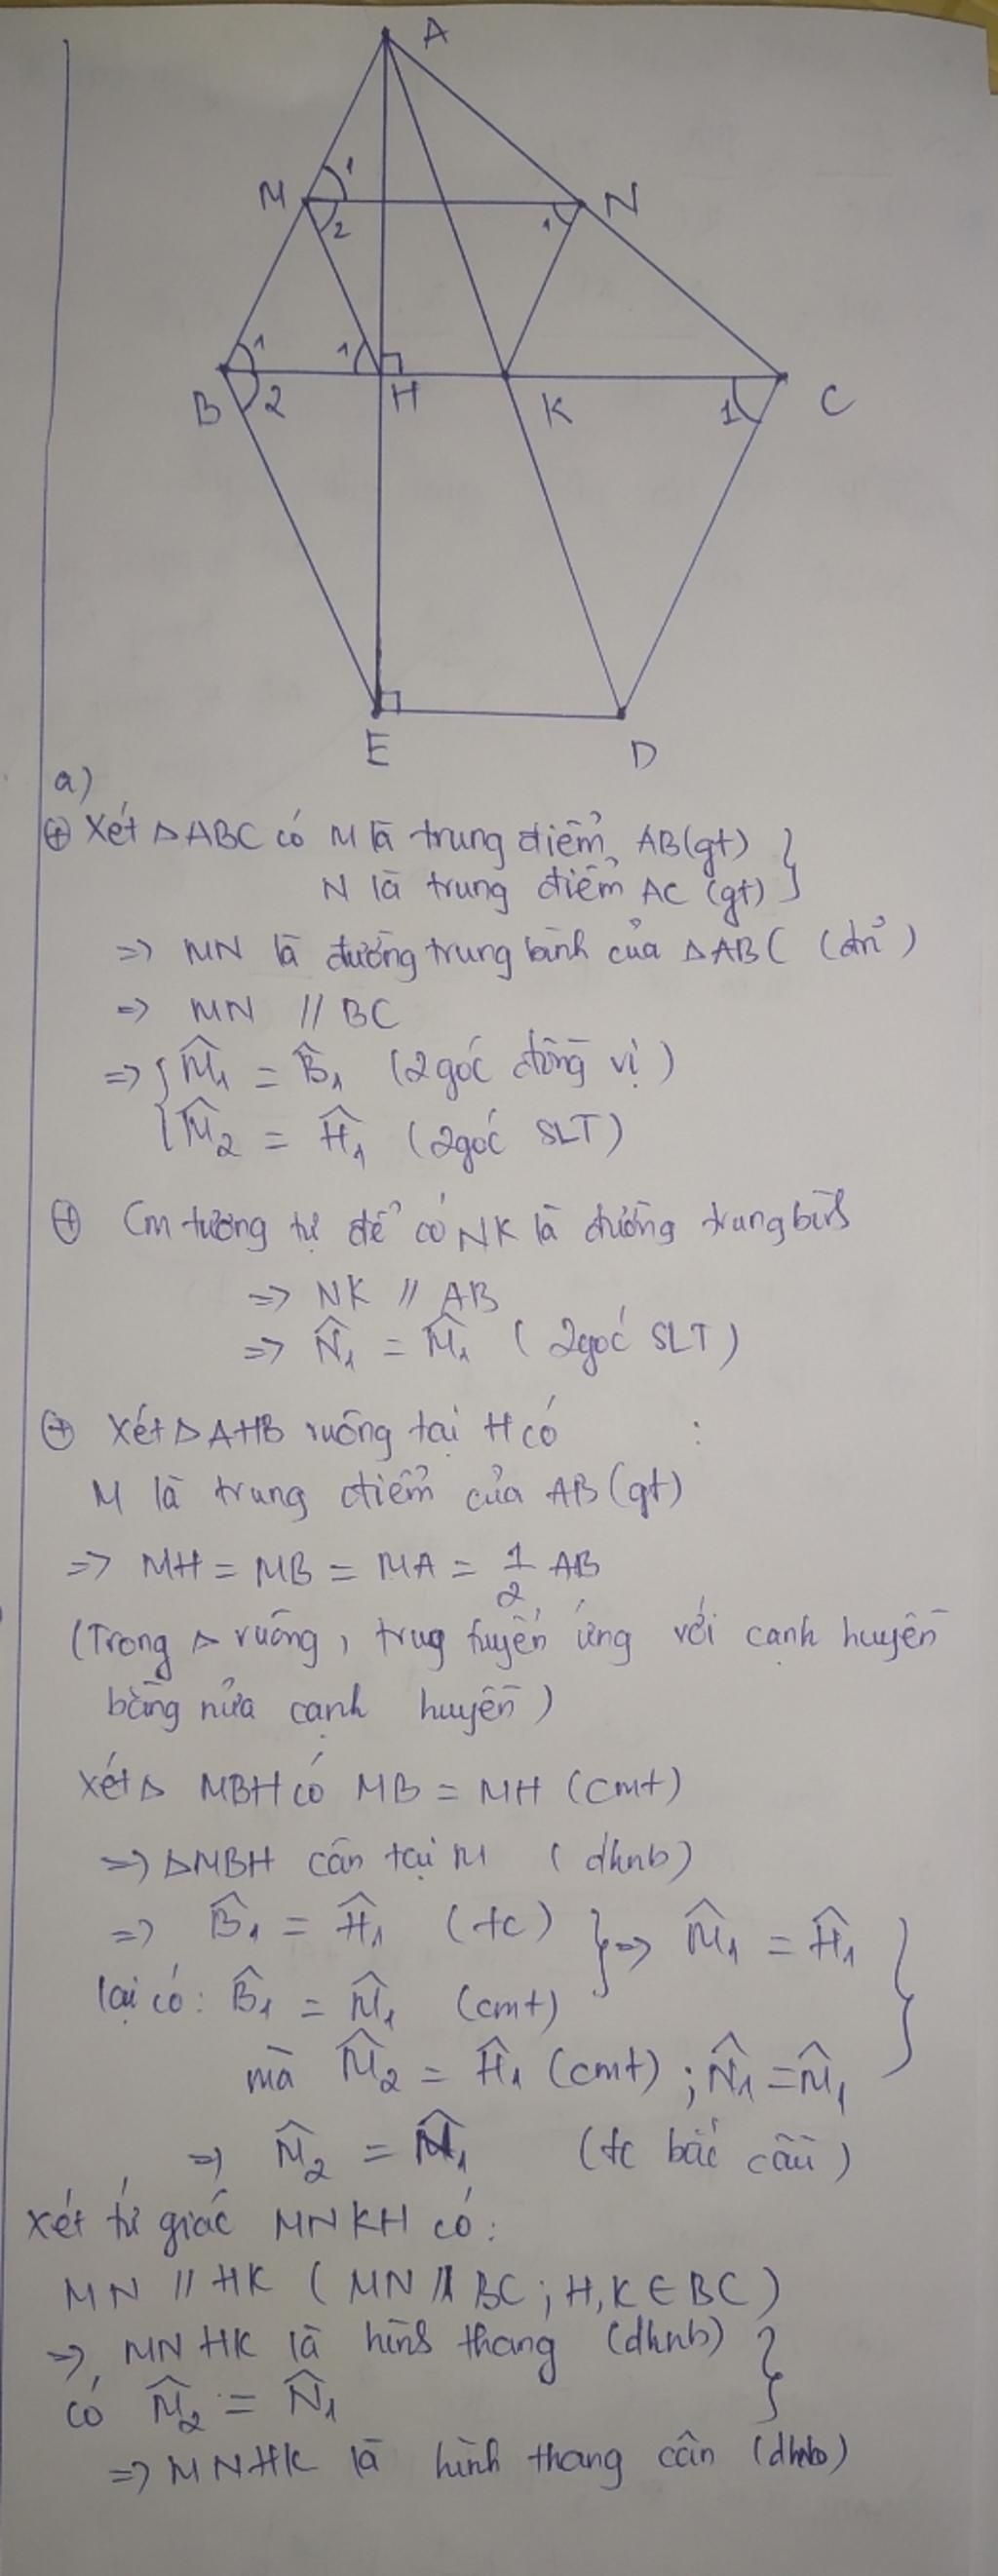 A
M
1
2
1
N
B
1
2
1
H
K
1
C
E
D
a)
⊕ Xét △ABC có M là trung điểm AB (gt) }
N là trung điểm AC (gt)
=> MN là đường trung bình của △ABC (đn)
=> MN // BC
=> { M̂₁ = B̂₁ (2 góc đồng vị)
M̂₂ = Ĥ₁ (2 góc SLT)
⊕ Cm tương tự để có NK là đường trung bình
=> NK // AB
=> N̂₁ = M̂₁ (2 góc SLT)
⊕ Xét △AHB vuông tại H có :
M là trung điểm của AB (gt)
=> MH = MB = MA = 1/2 AB
(Trong △ vuông, trug tuyến ứng với cạnh huyền
bằng nửa cạnh huyền)
Xét △ MBH có MB = MH (cmt)
=> △MBH cân tại M (dhnb)
=> B̂₁ = Ĥ₁ (tc) } => M̂₁ = Ĥ₁ }
lại có: B̂₁ = M̂₁ (cmt)
mà M̂₂ = Ĥ₁ (cmt) ; N̂₁ = M̂₁
=> M̂₂ = N̂₁ (tc bắc cầu)
Xét tứ giác MNKH có:
MN // HK (MN // BC ; H, K ∈ BC)
=> MNHK là hình thang (dhnb) }
có M̂₂ = N̂₁
=> MNHK là hình thang cân (dhnb)